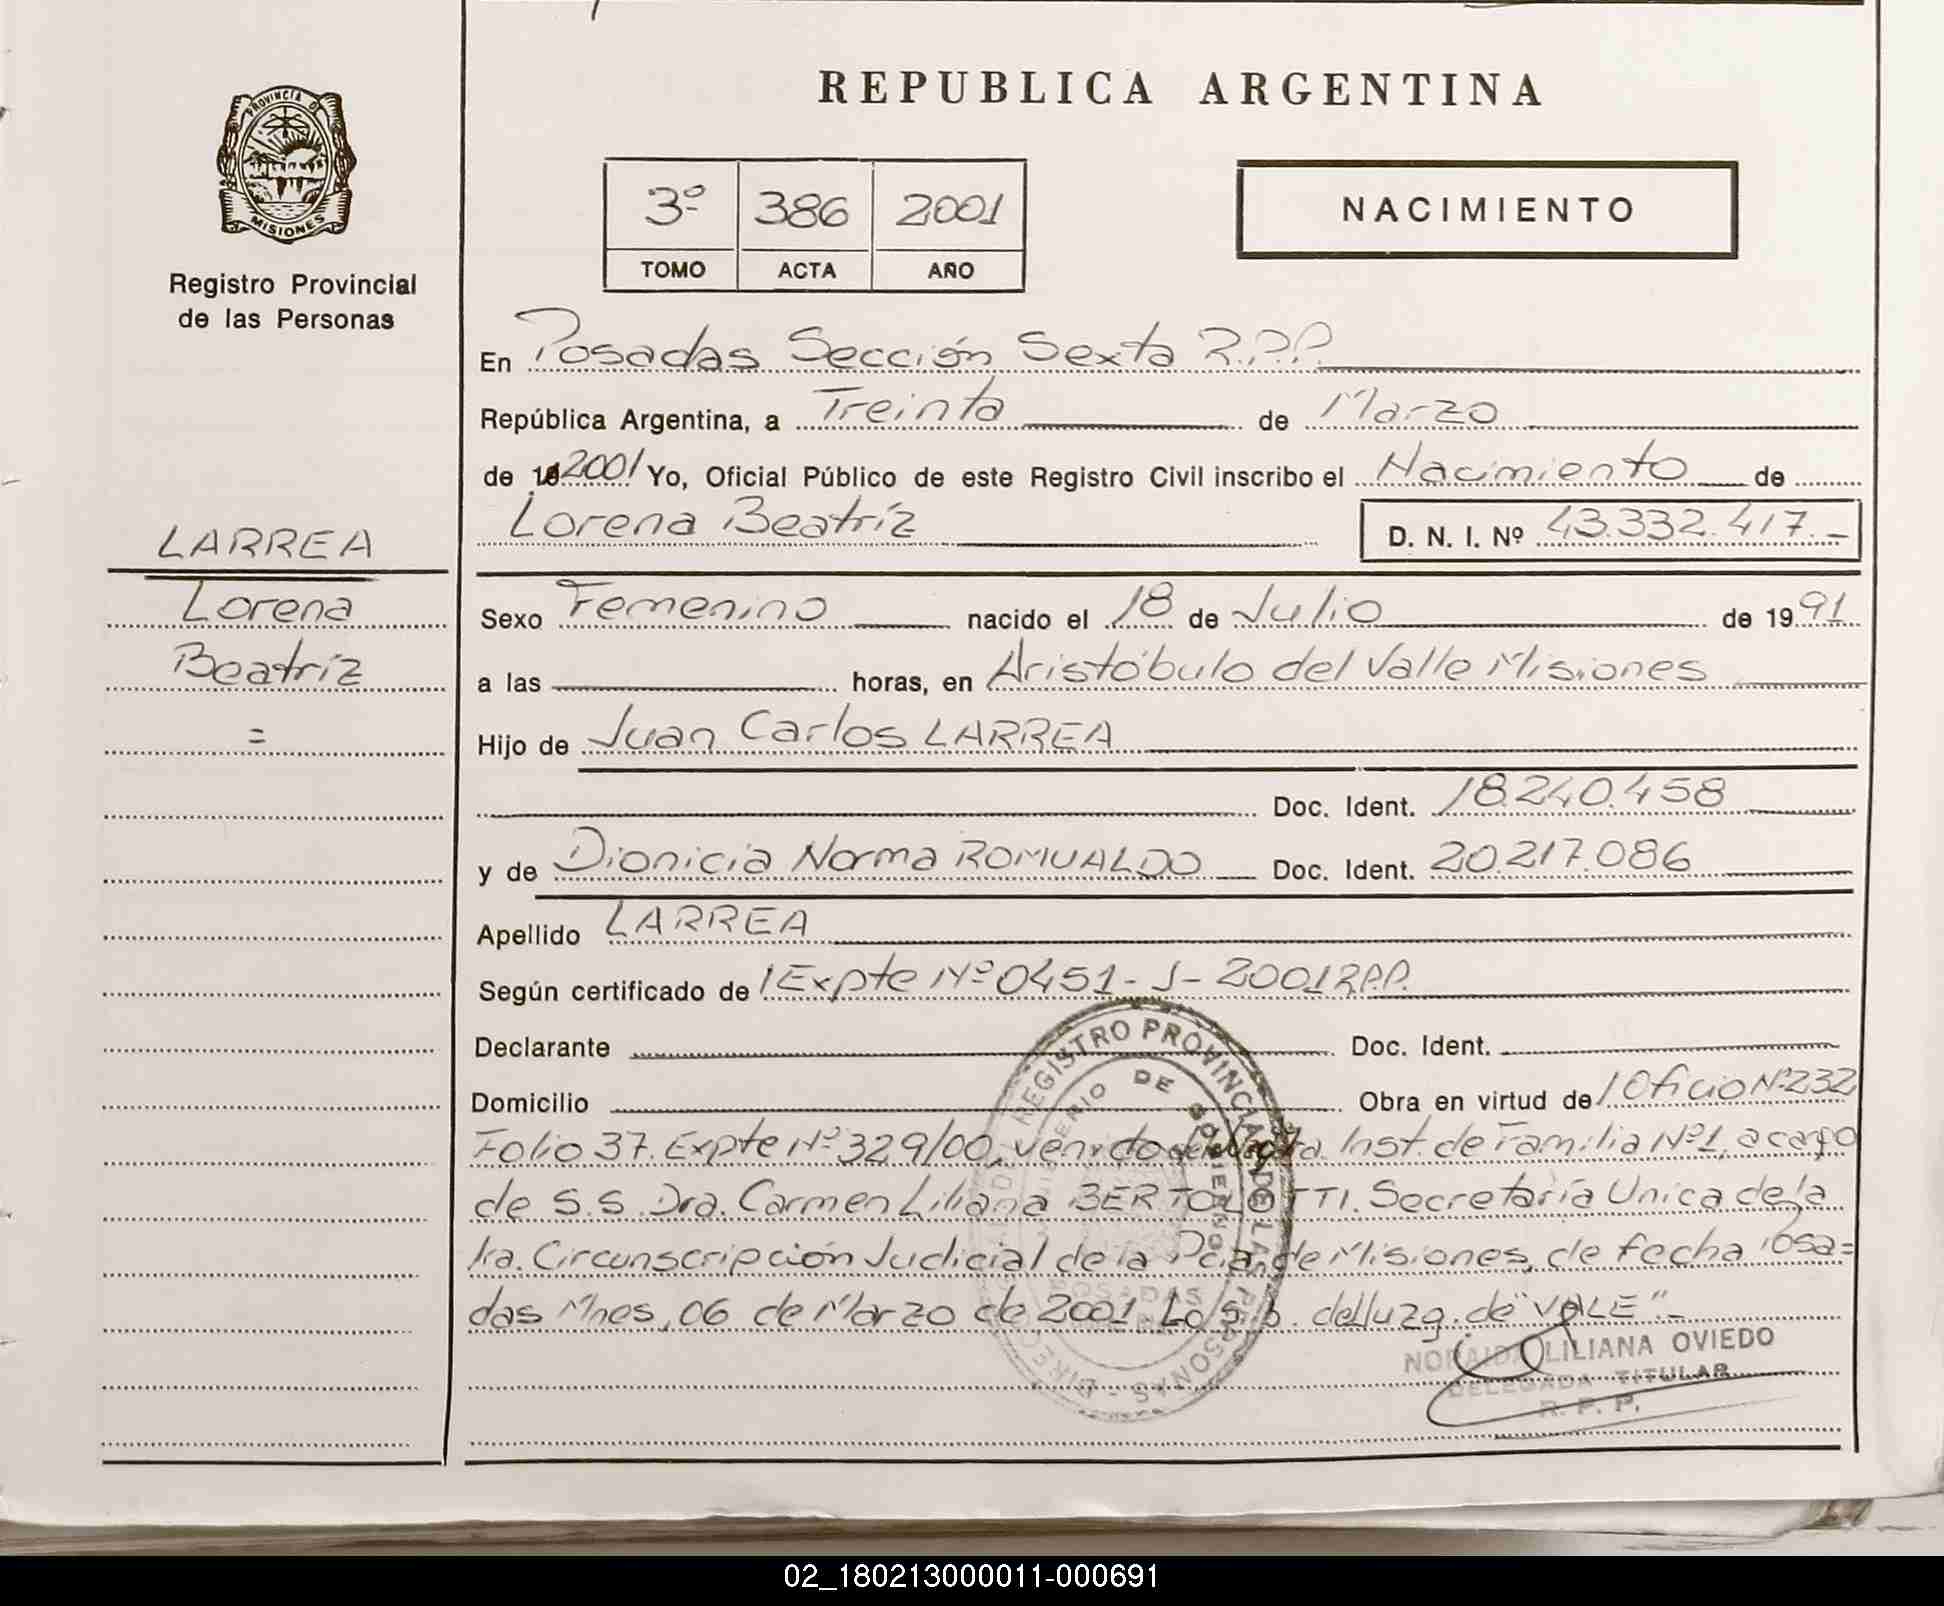 REPUBLICA ARGENTINA
PROVINCIA DE
MISIONES
Registro Provincial
de las Personas
3º 386 2001
TOMO ACTA AÑO
NACIMIENTO
En Posadas Sección Sexta R.P.P.
República Argentina, a Treinta de Marzo
de 2001 Yo, Oficial Público de este Registro Civil inscribo el Nacimiento de
Lorena Beatríz D. N. I. Nº 43.332.417.-
LARREA
Lorena
Beatríz
=
Sexo Femenino nacido el 18 de Julio de 1991
a las horas, en Aristóbulo del Valle Misiones
Hijo de Juan Carlos LARREA
Doc. Ident. 18.240.458
y de Dionicia Norma ROMUALDO Doc. Ident. 20.217.086
Apellido LARREA
Según certificado de / Expte Nº 0451-J-2001 R.P.P.
Declarante Doc. Ident.
Domicilio Obra en virtud de / Oficio Nº 232
Folio 37. Expte Nº 329/00, venido 1ra. Inst. de Familia Nº 1, a cargo
de S.S. Dra. Carmen Liliana BERTOLOTTI. Secretaría Unica de la
1ra. Circunscripción Judicial de la Pcia. de Misiones, de fecha Posa=
das Mnes, 06 de Marzo de 2001. Lo s.b. del Juzg. de "VALE".-
REGISTRO PROVINCIAL DE LAS PERSONAS
MINISTERIO DE GOBIERNO
POSADAS
NORAIDA LILIANA OVIEDO
DELEGADA TITULAR
R. P. P.
02_180213000011-000691